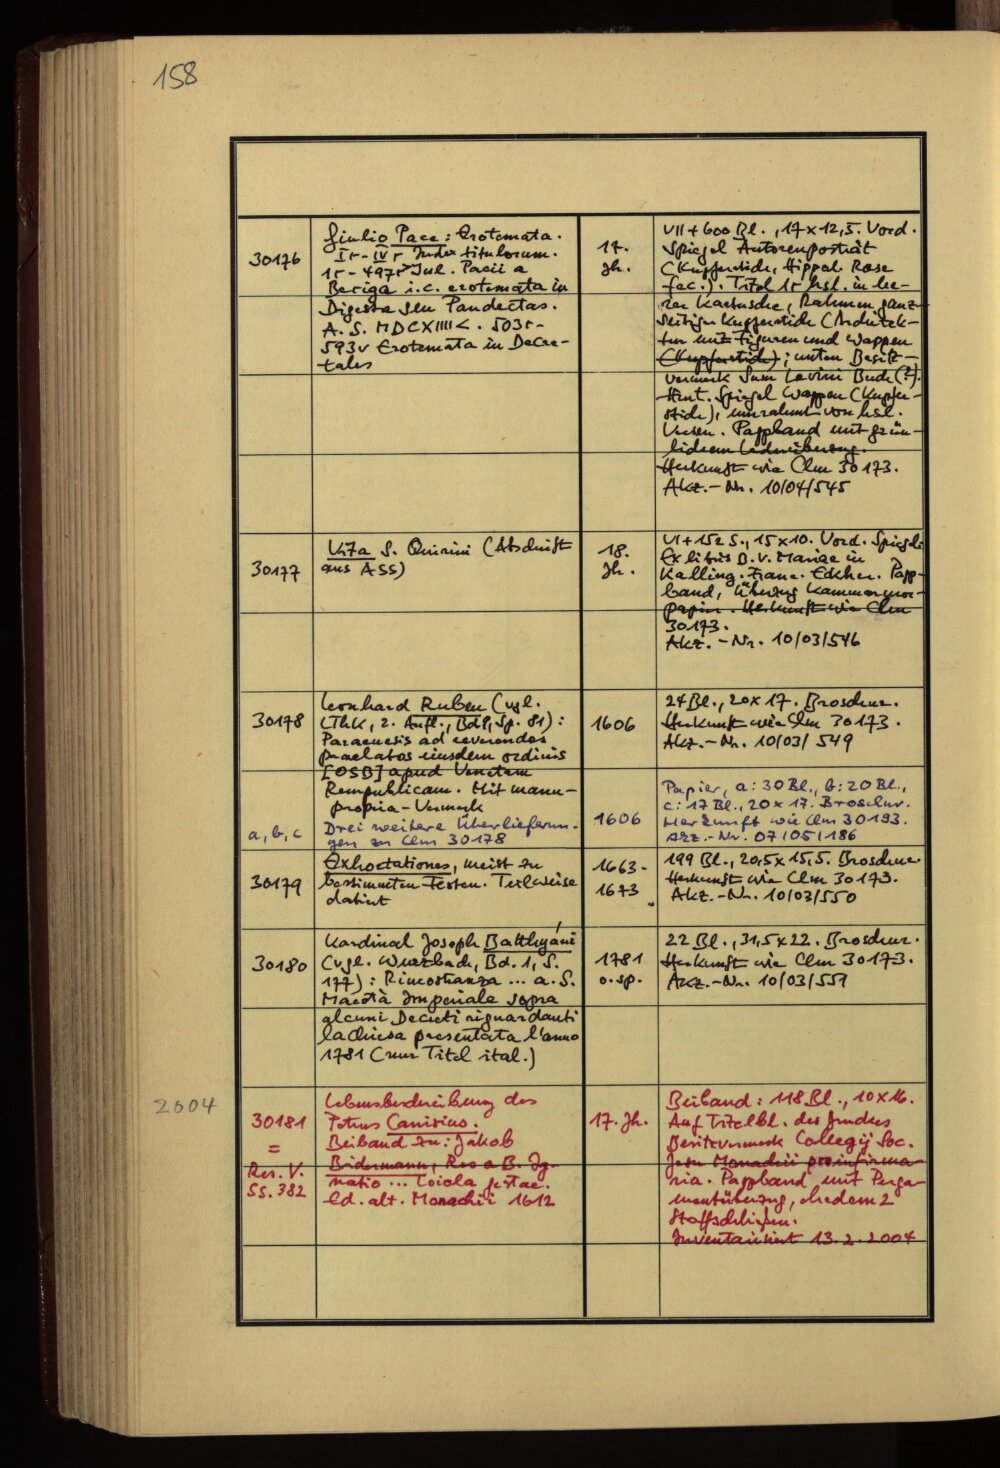 158
30176
Giulio Pace: Erotemata.
Ir-IVr Index titulorum.
1r-497r Jul. Pacii a
Beriga i.c. erotemata in
Digesta seu Pandectas.
A.S. MDCXIIII<. 503r-
593v Erotemata in Decre-
tales
17.
Jh.
VII+600 Bl., 17x12,5. Vord.
Spiegel Autorenporträt
(Kupferstich, Hippol. Rose
fec.). Titel 1r hsl. in lee-
rer Kartusche, Rahmen ganz-
seitiger Kupferstich (Architek-
tur mit Figuren und Wappen
(Kupferstich); unten Besitz-
vermerk Sum Lavini Buch(?).
Hint. Spiegel Wappen (Kupfer-
stich), umrahmt von hsl.
Versen. Pappband mit grün-
lichem Lederüberzug.
Herkunft wie Clm 30173.
Akz.-Nr. 10/04/545
30177
Vita S. Quirini (Abschrift
aus ASS)
18.
Jh.
VI+152 S., 15x10. Vord. Spiegel:
Exlibris B.V. Mariae in
Kalling. Franc. Eckher. Papp-
band, Überzug Kammarmor-
papier. Herkunft wie Clm
30173.
Akz.-Nr. 10/03/546
30178
Leonhard Ruben (vgl.
LThK, 2. Aufl., Bd 9, Sp. 81):
Paraenesis ad reverendos
praelatos eiusdem ordinis
[OSB] apud Venetam
Rempublicam. Mit manu-
propria-Vermerk
1606
24 Bl., 20x17. Broschur.
Herkunft wie Clm 30173.
Akz.-Nr. 10/03/549
a, b, c
Drei weitere Überlieferun-
gen zu Clm 30178
1606
Papier, a: 30 Bl., b: 20 Bl.,
c: 17 Bl., 20x17. Broschur.
Herkunft wie Clm 30193.
Akz.-Nr. 07/05/186
30179
Exhortationes, meist zu
bestimmten Festen. Teilweise
datiert
1663-
1673
199 Bl., 20,5x15,5. Broschur.
Herkunft wie Clm 30173.
Akz.-Nr. 10/03/550
30180
Kardinal Joseph Batthyáni
(vgl. Wurzbach, Bd. 1, S.
177): Rimostranza ... a. S.
Maestà Imperiale sopra
alcuni Decreti riguardanti
la Chiesa presentata l'anno
1781 (nur Titel ital.)
1781
o.Sp.
22 Bl., 31,5x22. Broschur.
Herkunft wie Clm 30173.
Akz.-Nr. 10/03/559
2004
30181
=
Res. V.
SS. 382
Lebensbeschreibung des
Petrus Canisius.
Beiband zu: Jakob
Bidermann, Res a B. Ig-
natio ... Loiola gestae.
Ed. alt. Monachii 1612
17. Jh.
Beiband: 118 Bl., 10x16.
Auf Titelbl. des Druckes
Besitzvermerk Collegij Soc.
Jesu Monachii pro infirma-
ria. Pappband mit Perga-
mentüberzug, ehedem 2
Stoffschließen.
Inventarisiert 13.2.2004